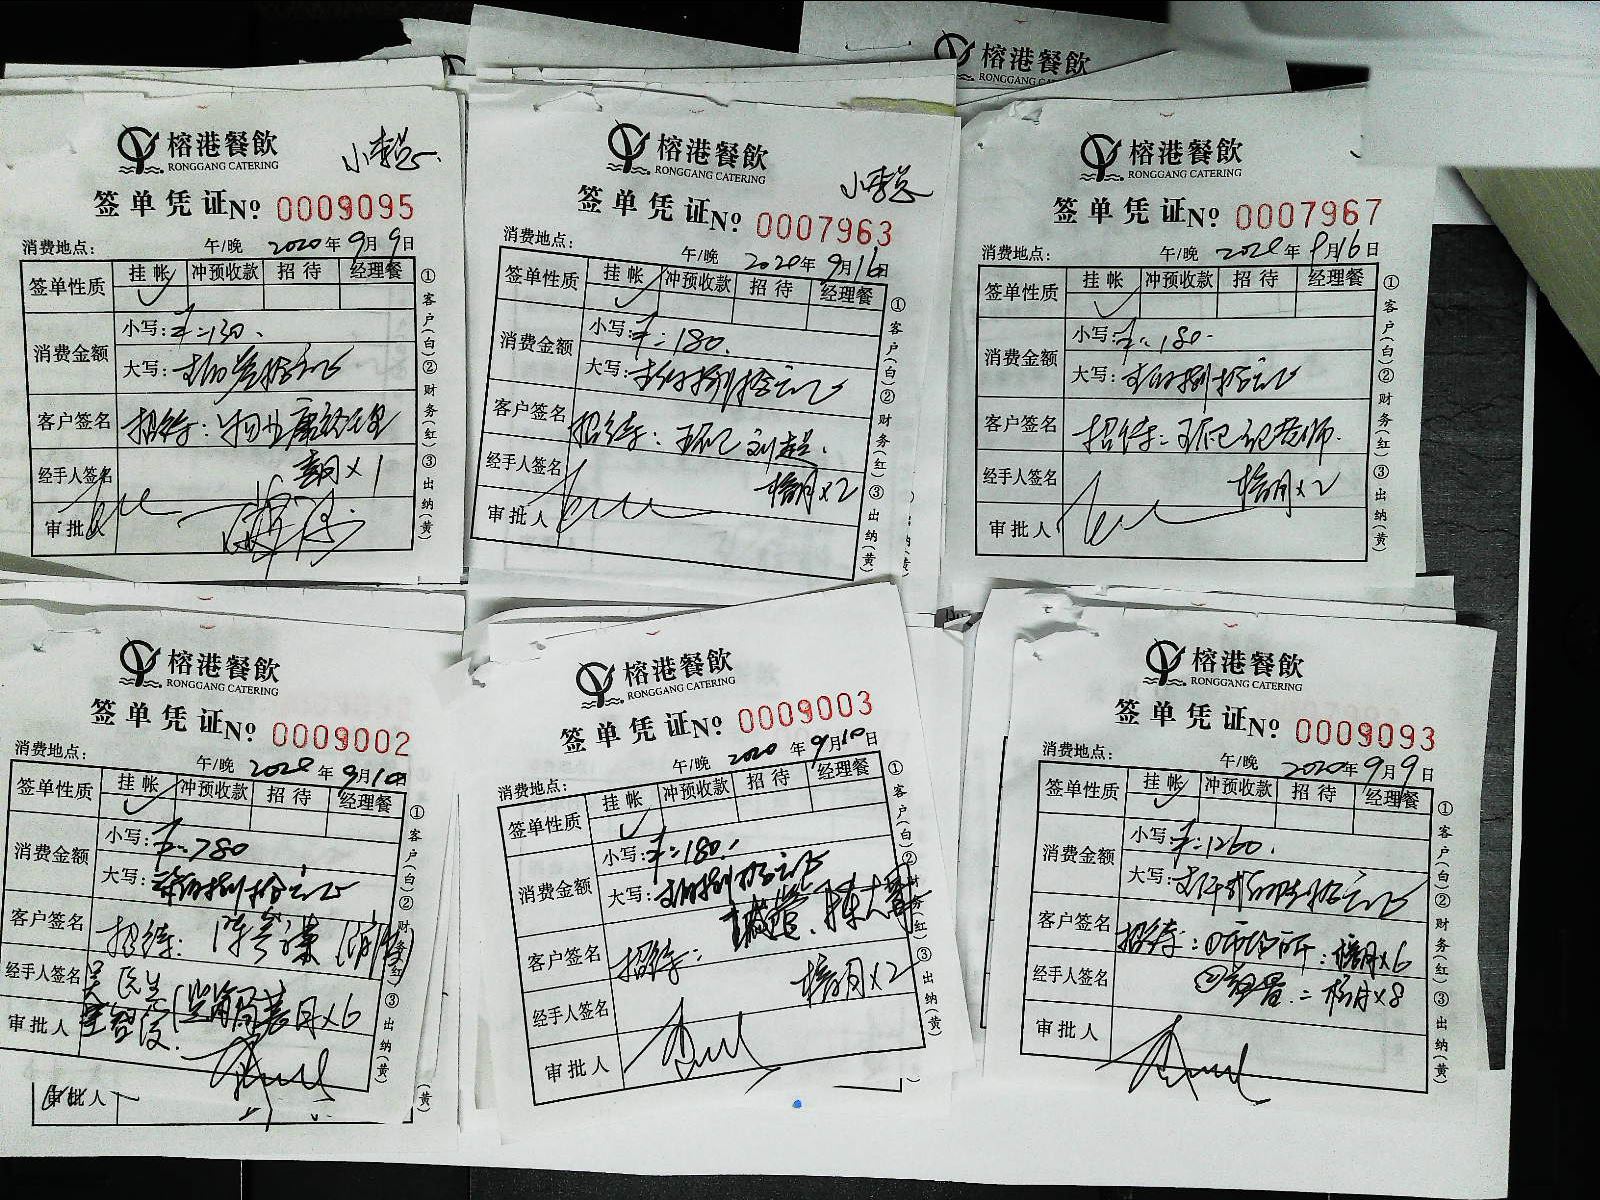 榕港餐飲
RONGGANG CATERING
榕港餐飲
RONGGANG CATERING
小李总
签单凭证№ 0009095
消费地点: 午/晚 2020年9月9日
签单性质 挂帐 冲预收款 招待 经理餐
消费金额 小写:¥:130.
大写:
客户签名 招待:
经手人签名 ×1
审批人
①客户(白)②财务(红)③出纳(黄)
榕港餐飲
RONGGANG CATERING
小李总
签单凭证№ 0007963
消费地点: 午/晚 2020年9月16日
签单性质 挂帐 冲预收款 招待 经理餐
消费金额 小写:¥:180.
大写:壹佰捌拾元正
客户签名 招待:
经手人签名 ×2
审批人
①客户(白)②财务(红)③出纳(黄)
榕港餐飲
RONGGANG CATERING
签单凭证№ 0007967
消费地点: 午/晚 2020年9月16日
签单性质 挂帐 冲预收款 招待 经理餐
消费金额 小写:¥:180.
大写:壹佰捌拾元正
客户签名 招待:
经手人签名 ×2
审批人
①客户(白)②财务(红)③出纳(黄)
榕港餐飲
RONGGANG CATERING
签单凭证№ 0009002
消费地点: 午/晚 2020年9月10日
签单性质 挂帐 冲预收款 招待 经理餐
消费金额 小写:¥:780
大写:柒佰捌拾元正
客户签名 招待:
经手人签名
审批人 ×6
①客户(白)②财务(红)③出纳(黄)
审批人
(黄)
榕港餐飲
RONGGANG CATERING
签单凭证№ 0009003
消费地点: 午/晚 2020年9月10日
签单性质 挂帐 冲预收款 招待 经理餐
消费金额 小写:¥:180.
大写:壹佰捌拾元正
客户签名 招待:
经手人签名 ×2
审批人
①客户(白)②财务(红)③出纳(黄)
榕港餐飲
RONGGANG CATERING
签单凭证№ 0009093
消费地点: 午/晚 2020年9月9日
签单性质 挂帐 冲预收款 招待 经理餐
消费金额 小写:¥:1260.
大写:壹仟贰佰陆拾元正
客户签名 招待:① ×6
经手人签名 ② ×8
审批人
①客户(白)②财务(红)③出纳(黄)